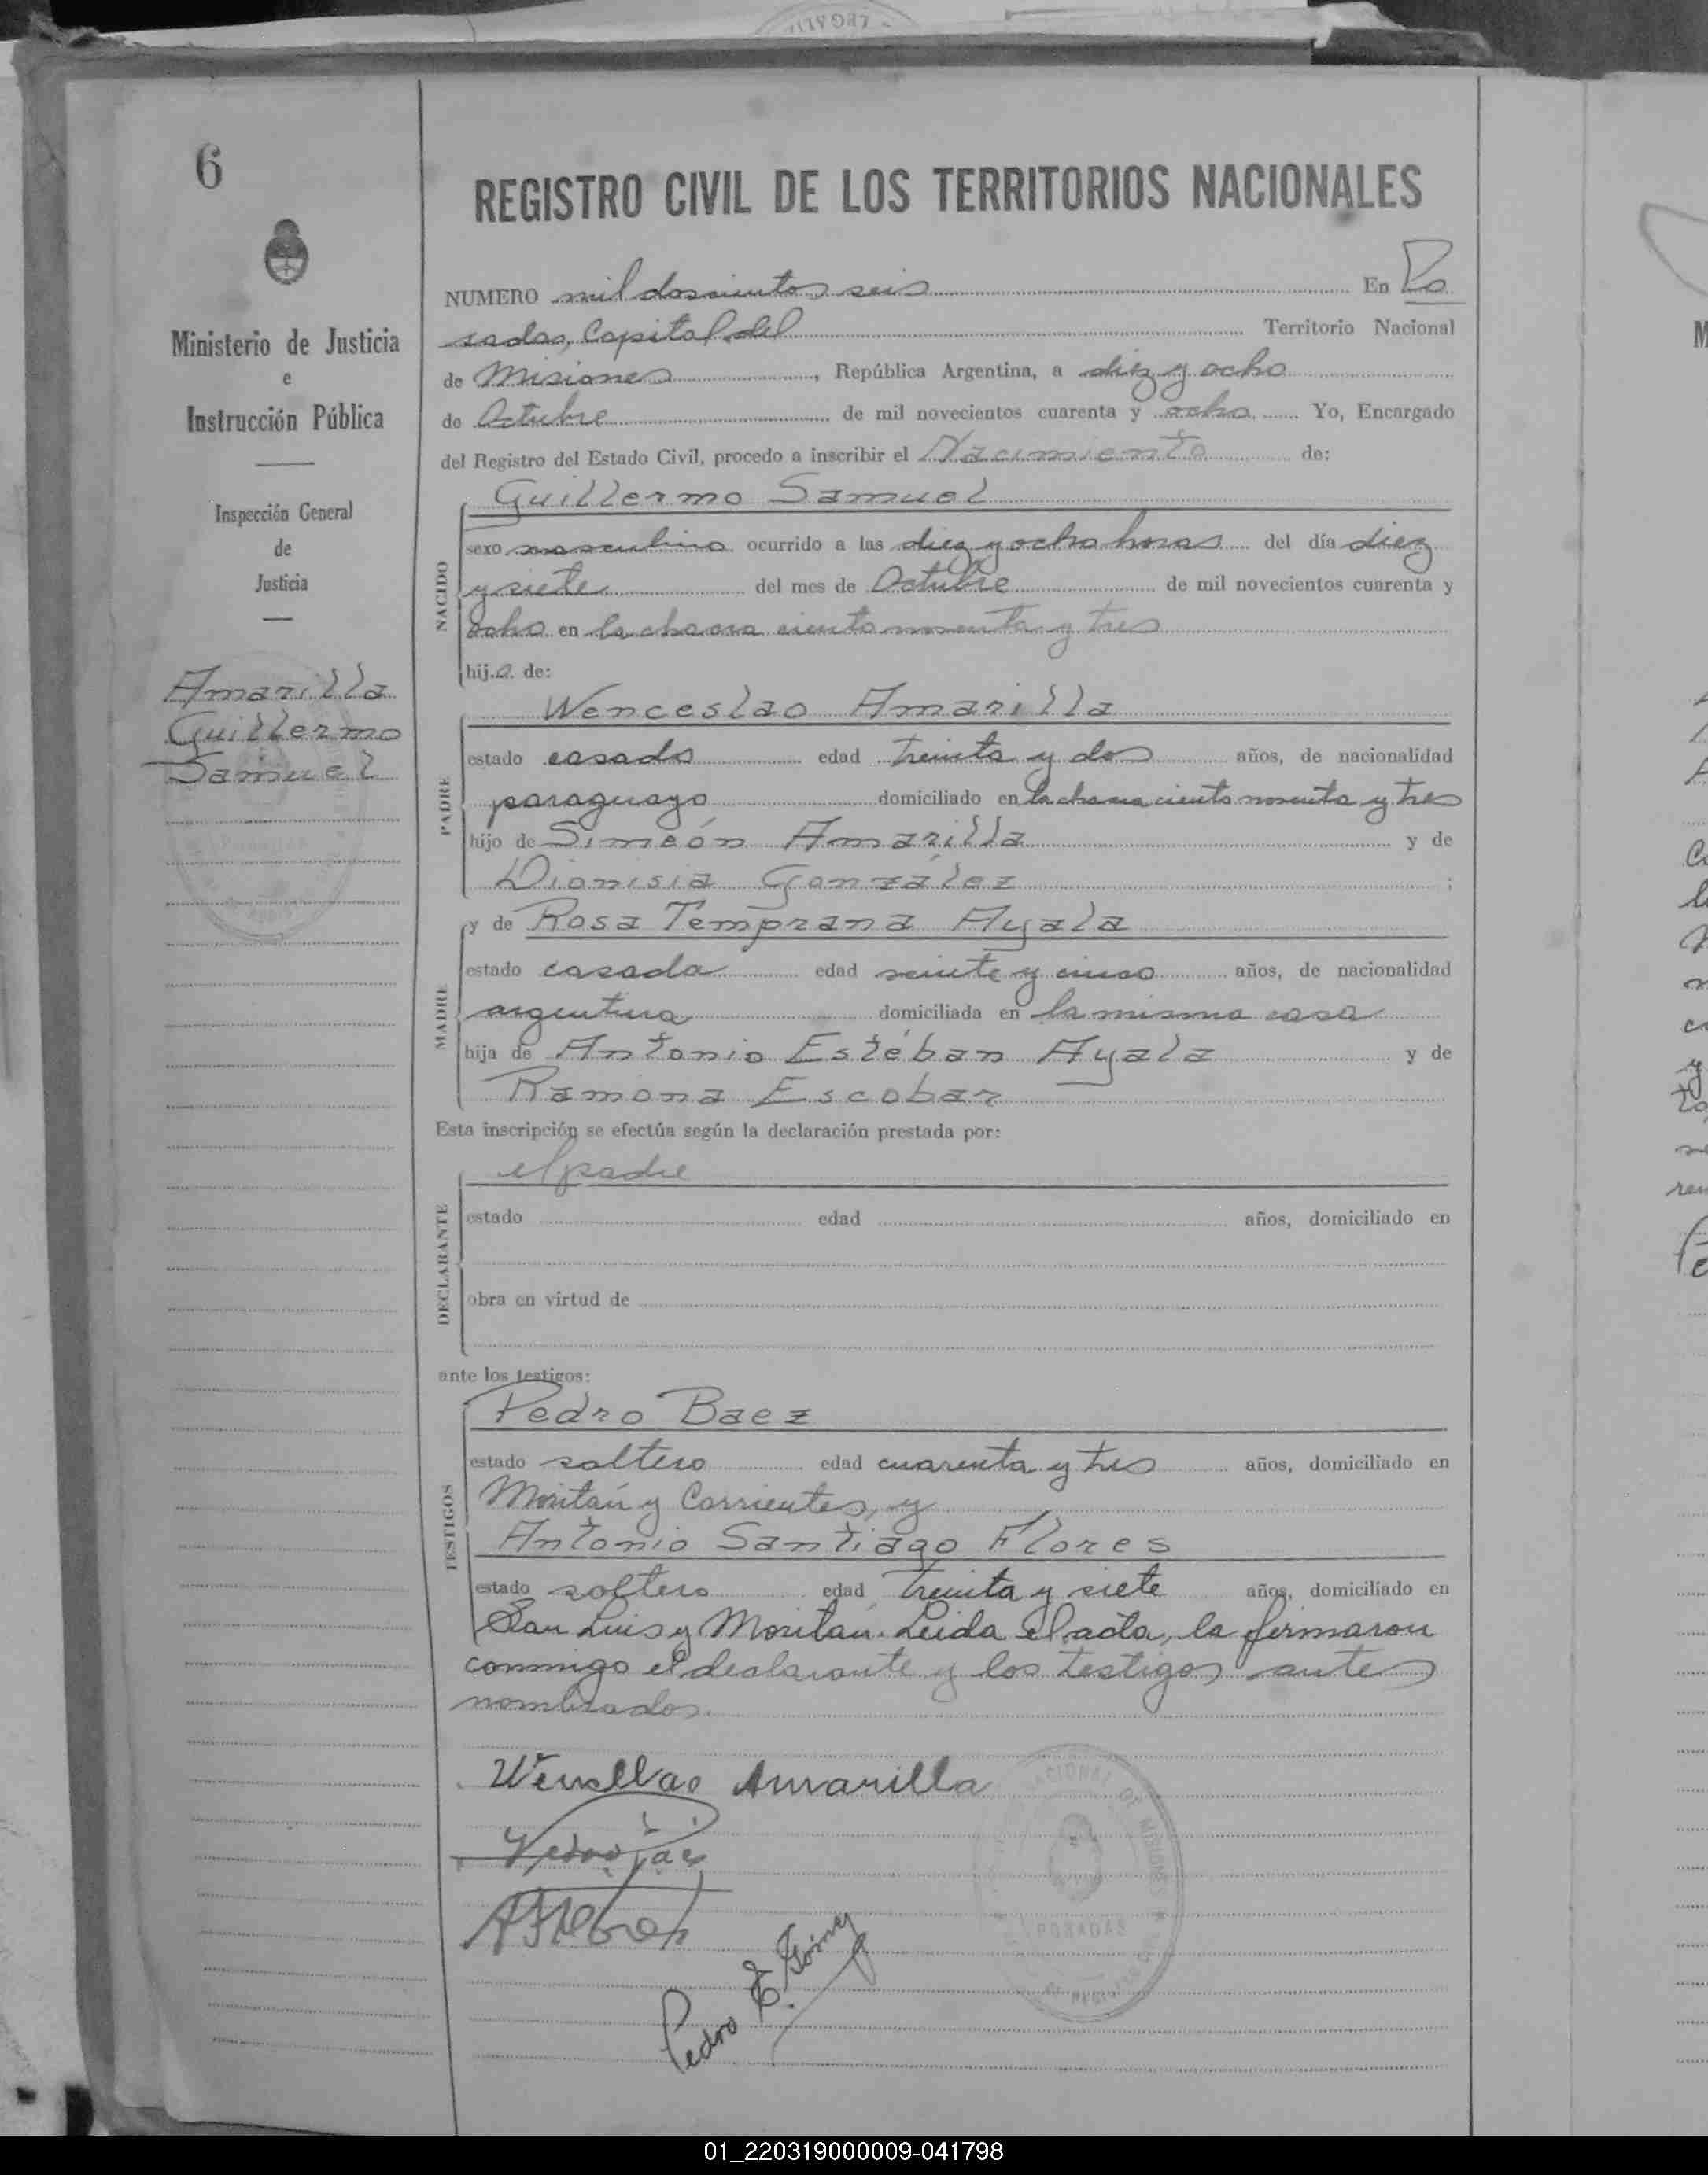 6
Ministerio de Justicia
e
Instrucción Pública
Inspección General
de
Justicia
Amarilla
Guillermo
Samuel
REGISTRO CIVIL DE LOS TERRITORIOS NACIONALES
NUMERO mil doscientos seis En Po
sadas, Capital del Territorio Nacional
de Misiones, República Argentina, a diez y ocho
de Octubre de mil novecientos cuarenta y ocho Yo, Encargado
del Registro del Estado Civil, procedo a inscribir el Nacimiento de:
NACIDO
Guillermo Samuel
sexo masculino ocurrido a las diez y ocho horas del día diez
y siete del mes de Octubre de mil novecientos cuarenta y
ocho en la chacra ciento noventa y tres
hijo de:
PADRE
Wenceslao Amarilla
estado casado edad treinta y dos años, de nacionalidad
paraguayo domiciliado en la chacra ciento noventa y tres
hijo de Simeón Amarilla y de
Dionisia González;
MADRE
y de Rosa Temprana Ayala
estado casada edad veinte y cinco años, de nacionalidad
argentina domiciliada en la misma casa
hija de Antonio Estéban Ayala y de
Ramona Escobar
Esta inscripción se efectúa según la declaración prestada por:
DECLARANTE
el padre
estado edad años, domiciliado en
obra en virtud de
ante los testigos:
TESTIGOS
Pedro Baez
estado soltero edad cuarenta y tres años, domiciliado en
Moritán y Corrientes, y
Antonio Santiago Flores
estado soltero edad treinta y siete años, domiciliado en
San Luis y Moritán. Leida el acta, la firmaron
conmigo el declarante y los testigos antes
nombrados.
Amarilla
Pedro
Pedro E.
POSADAS
01_220319000009-041798